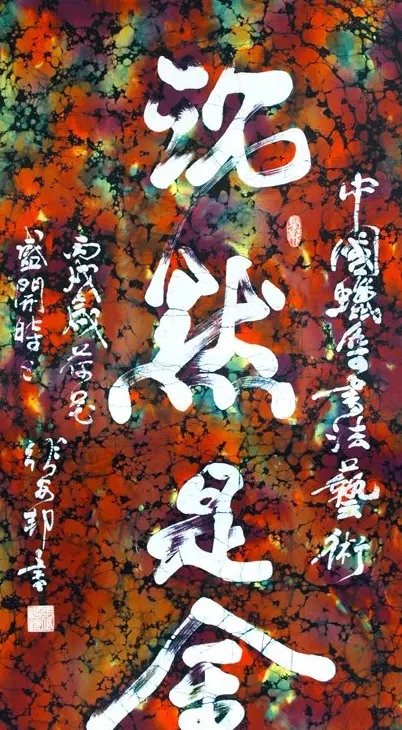 中國蠟染書法藝術
沉默是金
丙戌歲荷花
盛開時
安邦書